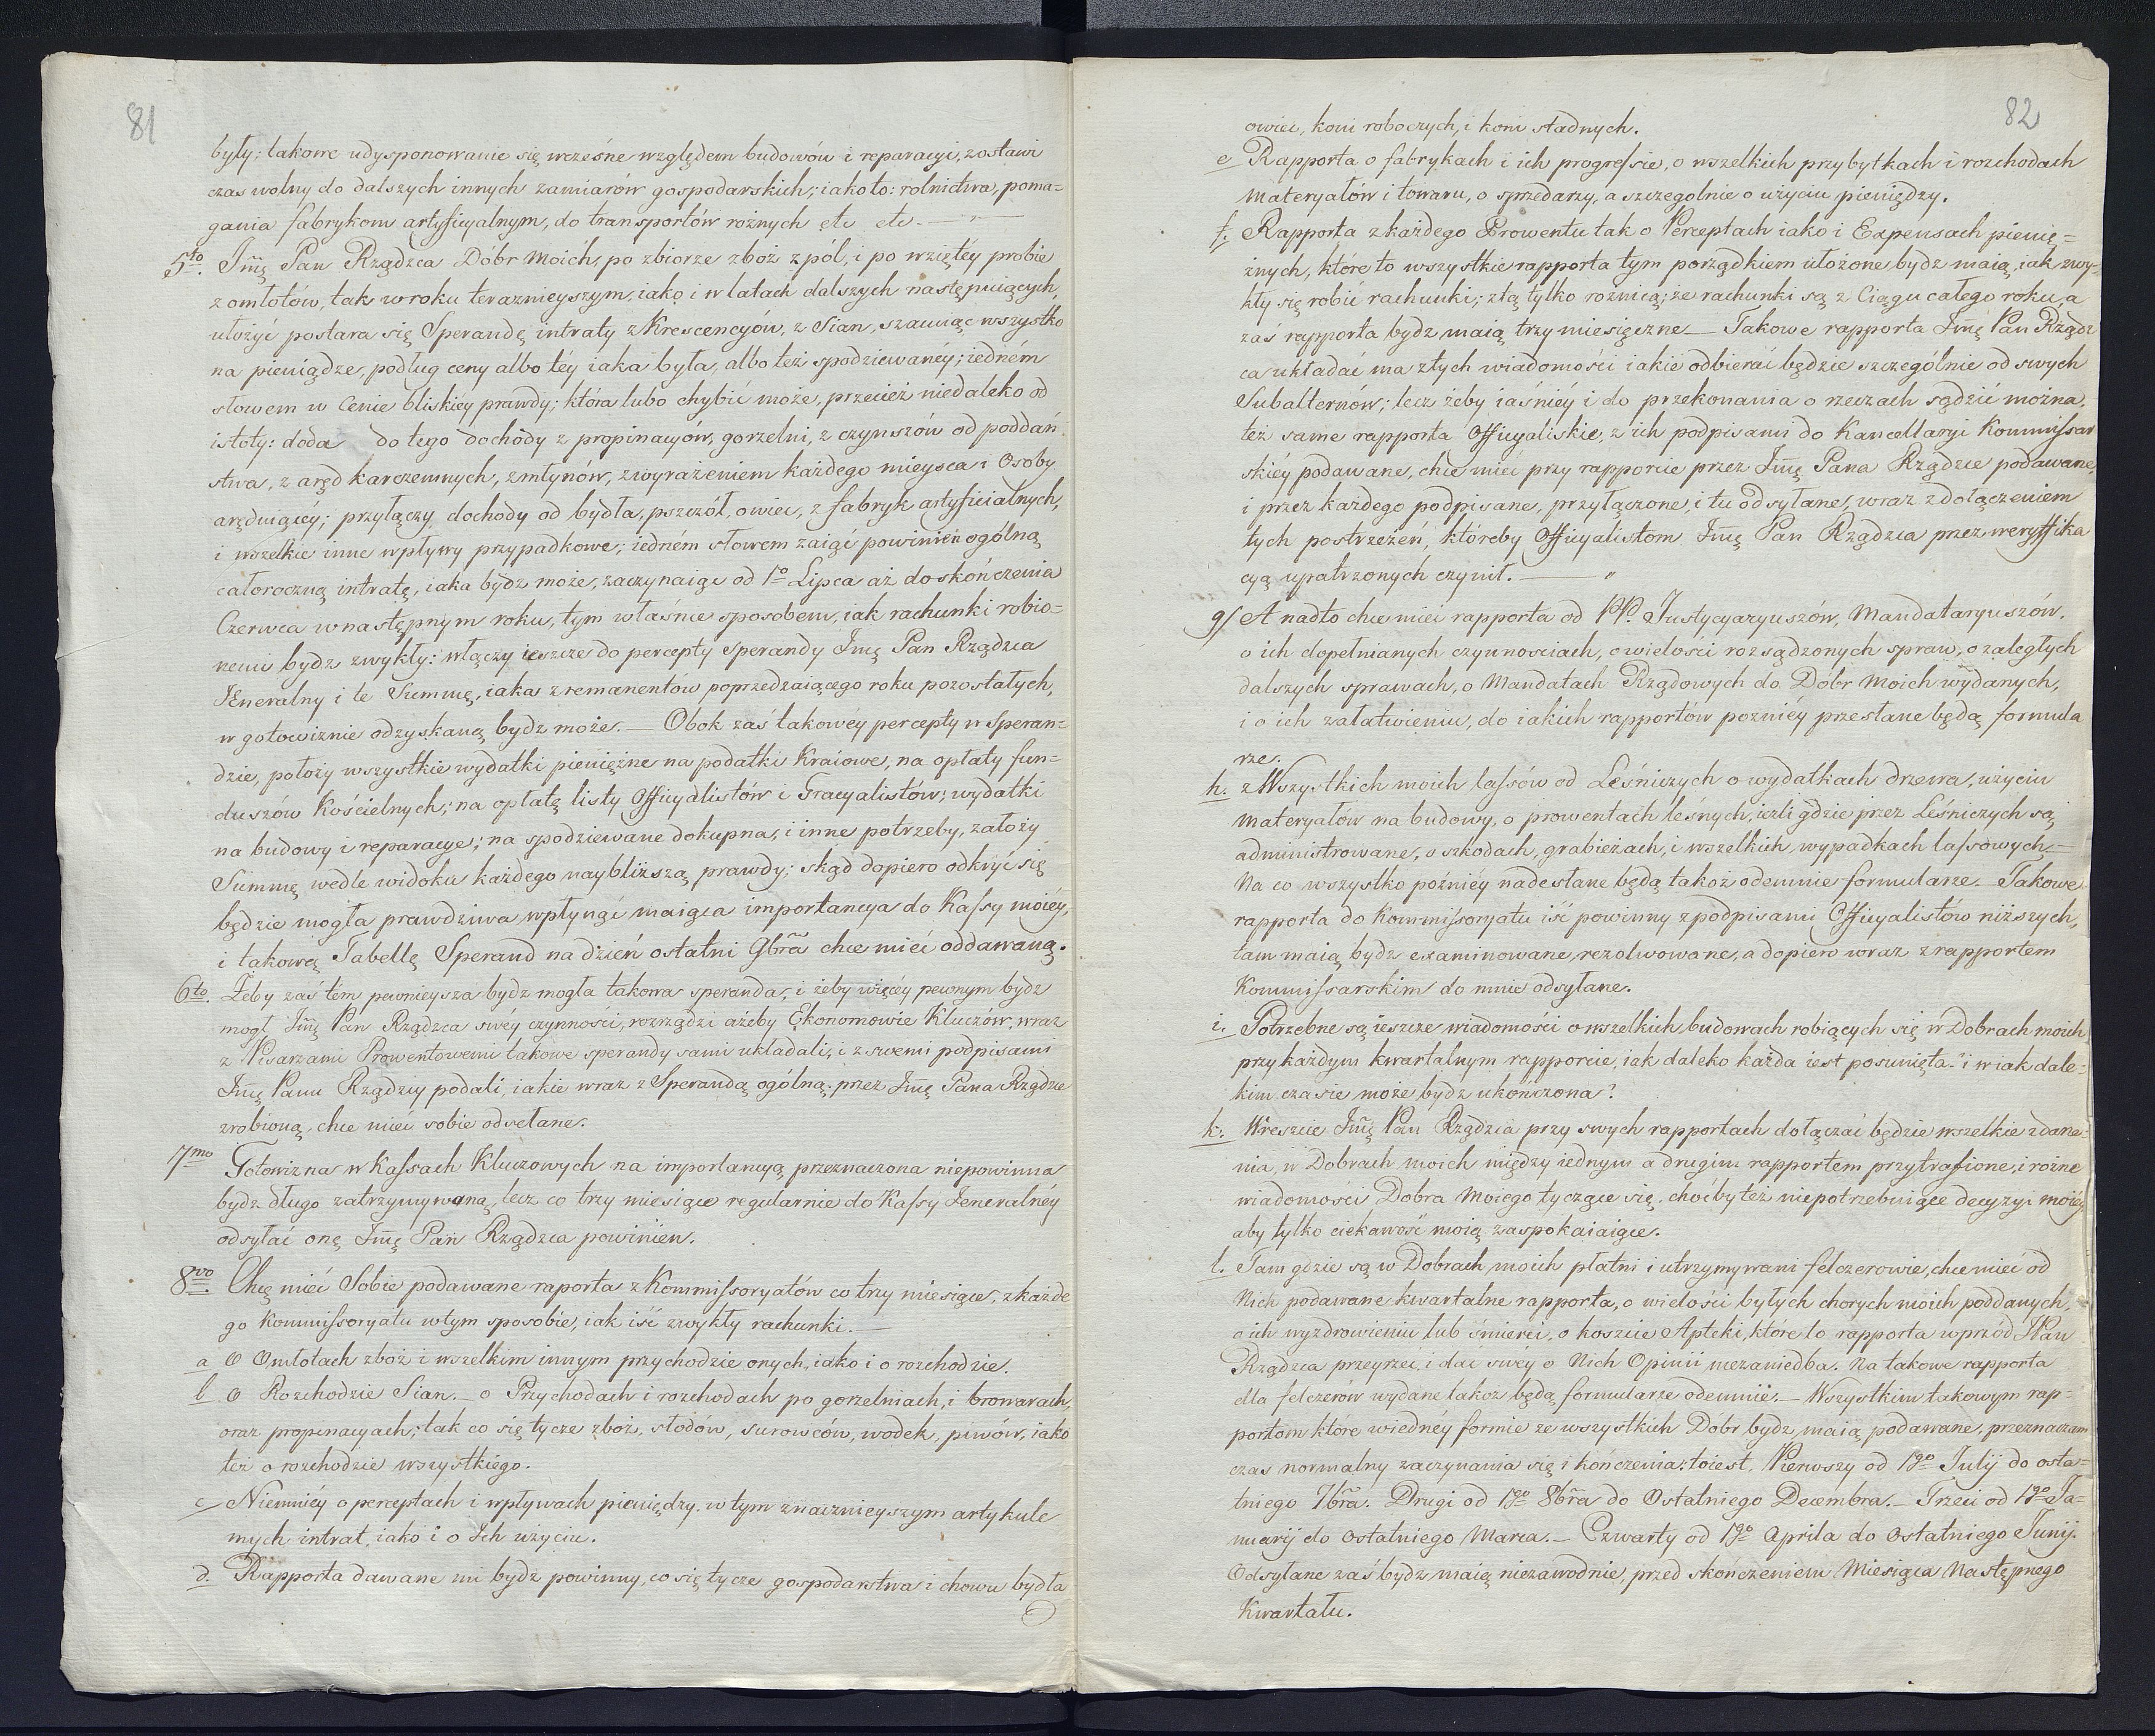 81
były; takowe udysponowanie się wcześne względem budowów i reparacyi, zostawi
czas wolny do dalszych innych zamiarów gospodarskich; iako to: rolnictwa, poma=
gania fabrykom artyficyalnym, do transportów rożnych etc etc. — „ —
5to. Jmć Pan Rządzca Dóbr moich, po zbiorze zboż z pól, i po wziętéy probie
z omłotów, tak w roku terazniéyszym, iako i w latach dalszych następuiących,
ułożyć postara się Sperandę intraty z Krescencyów, z Sian, szacuiąc wszystko
na pieniądze, podług ceny albo téy iaka była, albo też spodziewanéy; iedném
słowem w Cenie bliskiéy prawdy; która lubo chybić może, przecież niedaleko od
istoty: doda do tego dochody z propinacyów, gorzelni, z czynszów od poddań
stwa, z aręd karczemnych, z młynów, z wyrażeniem każdego mieysca i Osoby
aręduiącéy; przyłączy dochody od bydła, pszczół, owiec, z fabryk artyficialnych,
i wszelkie inne wpływy przypadkowe; iedném słowem zaiąć powinień ogólną
całoroczną intratę, iaka bydz może, zaczynaiąc od 1o Lipca aż do skończenia
Czerwca w następnym roku, tym właśnie sposobem, iak rachunki robio=
nemi bydz zwykły: włączy ieszcze do percepty sperandy Jmć Pan Rządzca
Jeneralny i te Summę, iaka z remanentów poprzedzaiącego roku pozostałych,
w gotowiznie odzyskaną bydz może. — Obok zaś takowéy percepty w Speran=
dzie, położy wszystkie wydatki pieniężne na podatki Kraiowe, na opłaty fun=
duszów Kościelnych; na opłatę listy Officyalistów i Gracyalistów; wydatki
na budowy i reparacye; na spodziewane dokupna, i inne potrzeby, założy
Summę wedle widoku każdego naybliższą prawdy; skąd dopiero odkryć się
będzie mogła prawdziwa wpłynąć maiąca importancya do Kassy moiéy,
i takową Tabellę Sperand na dzień ostatni 9bra chcę mieć oddawaną.
6to. Żeby zaś tém pewnieysza bydz mogła takowa speranda, i żeby więcéy pewnym bydz
mogł Jmć Pan Rządzca swéy czynności, rozrządzi ażeby Ekonomowie Kluczów, wraz
z Pisarzami Prowentowemi takowe sperandy sami układali, i z swemi podpisami
Jmć Panu Rządzcy podali, iakie wraz z Sperandą ogólną, przez Jmć Pana Rządzce
zrobioną, chcę mieć sobie odsełane.
7mo Gotowizna w Kassach Kluczowych na importancyą przeznaczona niepowinna
bydz długo zatrzymywaną, lecz co trzy miesiące regularnie do Kassy Jeneralnéy
odsyłać onę Jmć Pan Rządzca powinień.
8vo. Chcę mieć Sobie podawane raporta z Kommissoryatów co trzy miesiące, z każde
go Kommissoryatu w tym sposobie, iak iść zwykły rachunki. —
a O Omłotach zboż i wszelkim innym przychodzie onych, iako i o rozchodzie.
b O Rozchodzie Sian. — o Przychodach i rozchodach po gorzelniach, i browarach,
oraz propinacyach; tak co się tycze zboż, słodów, surowców, wodek, piwów, iako
też o rozchodzie wszystkiego.
c Niemniéy o perceptach i wpływach pieniędzy w tym znacznieyszym artykule
mych intrat, iako i o Ich użyciu.
d. Rapporta dawane mi bydz powinny, co się tycze gospodarstwa i chowu bydła
82
owiec, koni roboczych, i koni stadnych.
e Rapporta o fabrykach i ich progressie, o wszelkich przybytkach i rozchodach
materyałów i towaru, o sprzedarzy, a szczegolnie o użyciu pieniędzy.
f. Rapporta z każdego Prowentu tak o Perceptach iako i Expensach pienię=
żnych, które to wszystkie rapporta tym porządkiem ułożone bydz maią, iak zwy=
kły się robić rachunki; z tą tylko rożnicą; że rachunki są z Ciągu całego roku, a
zaś rapporta bydz maią trzy miesięczne — Takowe rapporta Jmć Pan Rządz
ca układać ma z tych wiadomości iakie odbierać będzie szczególnie od swych
Subalternów; lecz żeby iaśniéy i do przekonania o rzeczach sądzić można,
też same rapporta Officyaliskie, z ich podpisami do Kancellaryi Kommissar
skiéy podawane, chcę mieć przy rapporcie przez Jmć Pana Rządzce podawane,
i przez każdego podpisane, przyłączone, i tu odsyłane, wraz z dołączeniem
tych postrzeżeń, któreby Officyalistom Jmć Pan Rządzca przez weryffika
cyą upatrzonych czynił. — „
g/ A nadto chcę mieć rapporta od PP. Justycyaryuszów, Mandataryuszów,
o ich dopełnianych czynnościach, o wielości rozsądzonych spraw, o zaległych
dalszych sprawach, o Mandatach Rządowych do Dóbr moich wydanych,
i o ich załatwieniu, do iakich rapportów pozniéy przesłane będą formula
rze.
h. z Wszystkich moich lassów od Leśniczych o wydatkach drzewa, użyciu
materyałów na budowy, o prowentach leśnych, ieżli gdzie przez Leśniczych są
administrowane, o szkodach, grabieżach, i wszelkich wypadkach lassowych. —
Na co wszystko poźniéy nadesłane będą takoż odemnie formularze — Takowe
rapporta do Kommissoryatu iść powinny z podpisami Officyalistów niższych,
tam maią bydz examinowane, rezolwowane, a dopiero wraz z rapportem
Kommissarskim do mnie odsyłane.
i. Potrzebne są ieszcze wiadomości o wszelkich budowach robiących się w Dobrach moich
przy każdym kwartalnym rapporcie, iak daleko każda iest posunięta? i w iak dale=
kim czasie może bydz ukończona?
k. Wreszcie Jmć Pan Rządzca przy swych rapportach dołączać będzie wszelkie zdarze=
nia, w Dobrach moich między iednym a drugim rapportem przytrafione, i rożne
wiadomości Dobra moiego tyczące się, choćby też niepotrzebuiące decyzyi moiéy
aby tylko ciekawość moią zaspokaiaiące.
l. Tam gdzie są w Dobrach moich płatni i utrzymywani felczerowie, chcę mieć od
Nich podawane kwartalne rapporta, o wielości byłych chorych moich poddanych,
o ich wyzdrowieniu lub śmierci, o koszcie Apteki, które to rapporta wprzód JPan
Rządzca przeyrzeć, i dać swéy o Nich Opinii niezaniedba. Na takowe rapporta
dla felczerów wydane takoż będą formularze odemnie. — Wszystkim takowym rap=
portom które w iednéy formie ze wszystkich Dobr bydz maią podawane, przeznaczam
czas normalny zaczynania się i kończenia: toiest. Pierwszy od 1go Julij do osta=
tniego 7bra. Drugi od 1go 8bra do Ostatniego Decembra. — Trzeci od 1go Ja=
nuarij do ostatniego Marca. — Czwarty od 1go Aprila do ostatniego Junij.
Odsyłane zaś bydz maią niezawodnie, przed skończeniem Miesiąca Następnego
Kwartału.